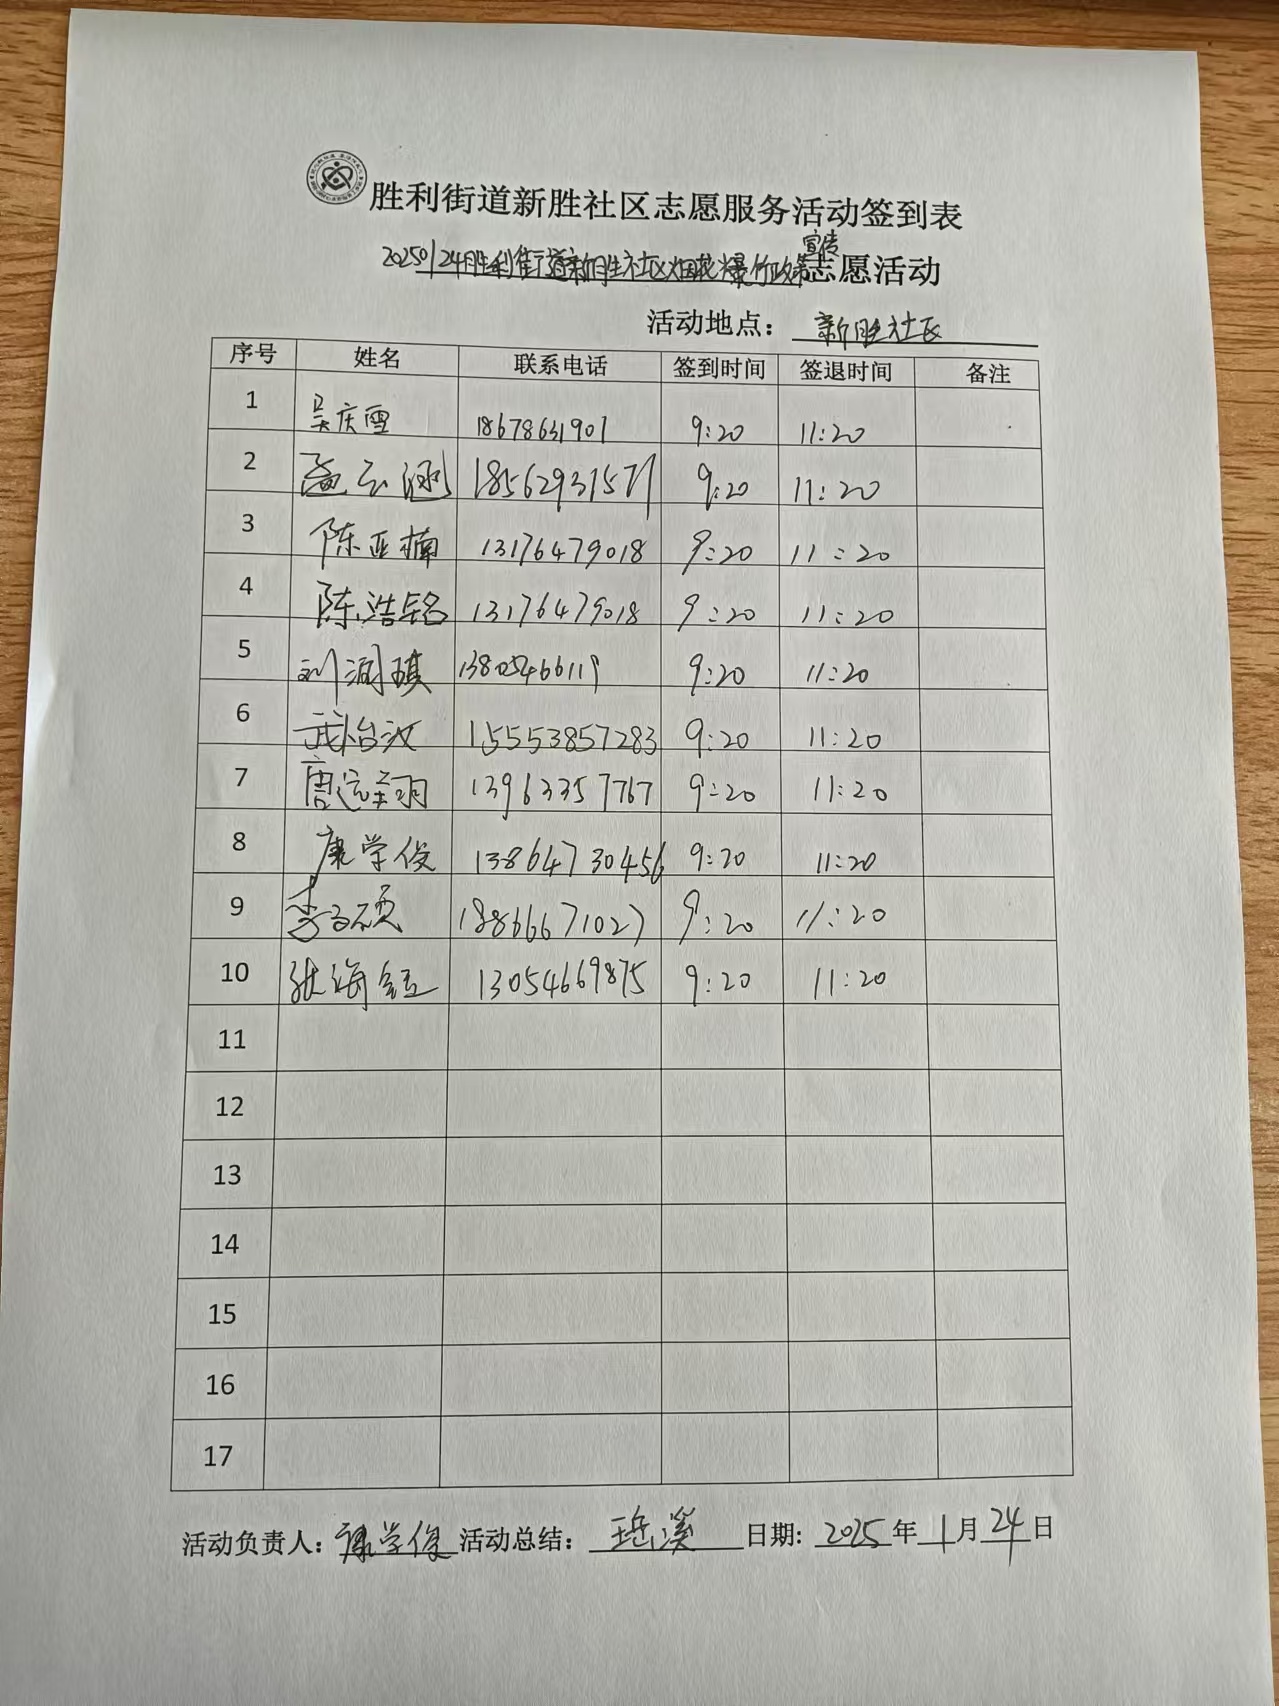 胜利街道新胜社区志愿服务活动签到表
宣传
20250124胜利街道新胜社区烟花爆竹政策志愿活动
活动地点：新胜社区
序号 姓名 联系电话 签到时间 签退时间 备注
1 吴庆雪 18678631901 9:20 11:20
2 孟云涵 18562931571 9:20 11:20
3 陈亚楠 13176479018 9:20 11:20
4 陈浩铭 13176479018 9:20 11:20
5 刘润琪 13805466119 9:20 11:20
6 武怡汝 15553857283 9:20 11:20
7 唐运至羽 13963357767 9:20 11:20
8 康学俊 13864730456 9:20 11:20
9 李子硕 18866671027 9:20 11:20
10 张海钰 13054669875 9:20 11:20
11
12
13
14
15
16
17
活动负责人：康学俊 活动总结： 日期：2025年1月24日